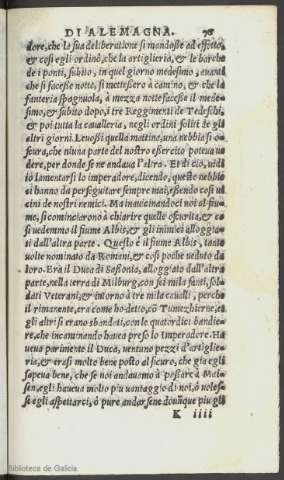 DI ALEMAGNA. 76
dore, che la sua deliberatione si mandasse ad effetto,
& così egli ordinò, che la artiglieria, & le barche
de i ponti, subito, in quel giorno medesimo, auanti
che si facesse notte, si mettessero à camino, & che la
fanteria spagnuola, à mezza notte facesse il mede-
simo, & subito dopo, i tre Reggimenti de Tedeschi,
& poi tutta la caualleria, negli ordini soliti de gli
altri giorni. Leuossi quella mattina, una nebbia si o-
scura, che niuna parte del nostro essercito poteua ue
dere, per donde se ne andaua l'altra. Et di ciò, udì
io lamentarsi lo imperadore, dicendo, queste nebbie
ci hanno da perseguitare sempre mai, essendo così ui
cini de nostri nemici. Ma inuicinandoci noi al fiu-
me, si cominciarono à chiarire quelle oscurità, & co
sì uedemmo il fiume Albis, & gli inimici alloggia-
ti dall'altra parte. Questo è il fiume Albis, tante
uolte nominato da Romani, & così poche ueduto da
loro. Era il Duca di Sassonia, alloggiato dall'altra
parte, nella terra di Milburg, con sei mila fanti, sol-
dati Veterani, & intorno à tre mila caualli, perche
il rimanente, era come ho detto, cō Tumezhierne, et
gli altri si erano sbandati, con le quatordici bandie-
re, che incaminando haueа preso lo Imperadore. Ha
ueua parimente il Duca, uentuno pezzi d'artiglie-
ria, & erasi molto bene posto al sicuro, che gia egli
sapeua bene, che se noi andauamo à passare à Mai-
sen, egli haueua molto piu uantaggio di noi, ò uoles-
se egli aspettarci, ò pure andarsene dounque piu gli
K iiii
Biblioteca de Galicia